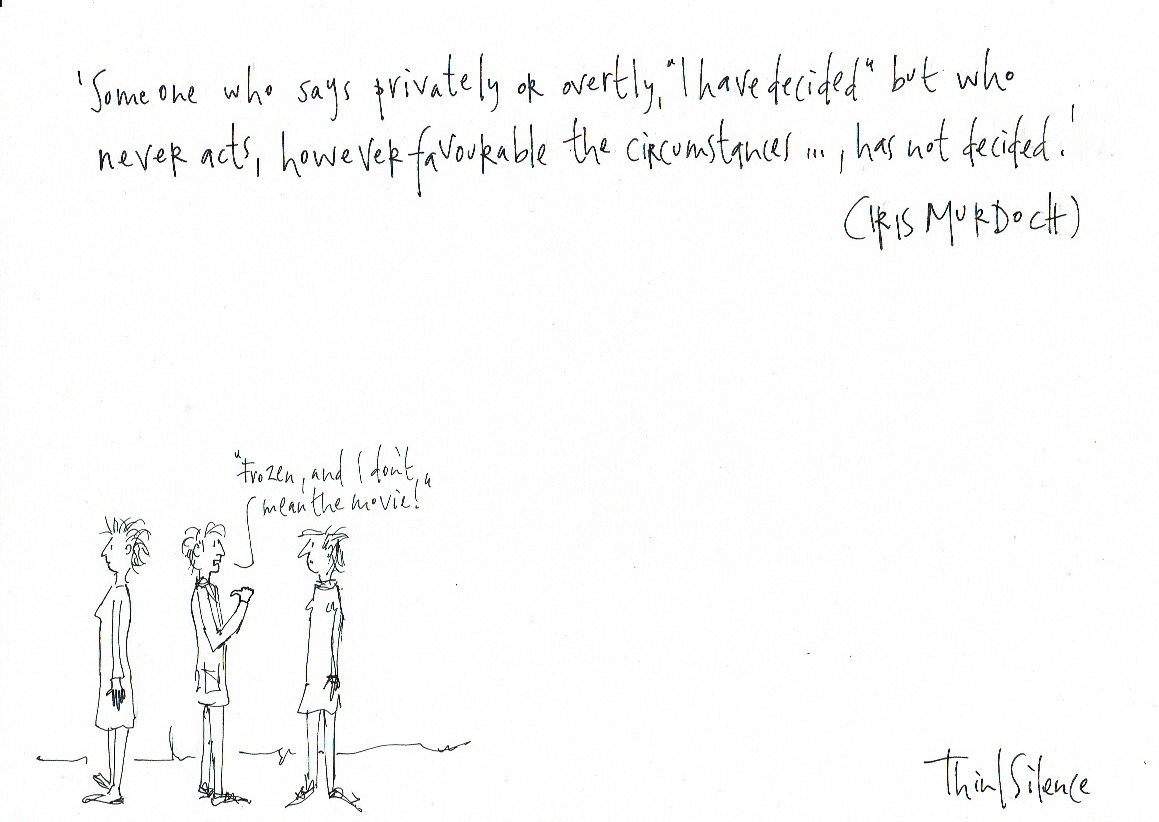 'Someone who says privately or overtly, "I have decided" but who
never acts, however favourable the circumstances ..., has not decided.'
(IRIS MURDOCH)
"Frozen, and I don't
mean the movie!"
Think/Silence